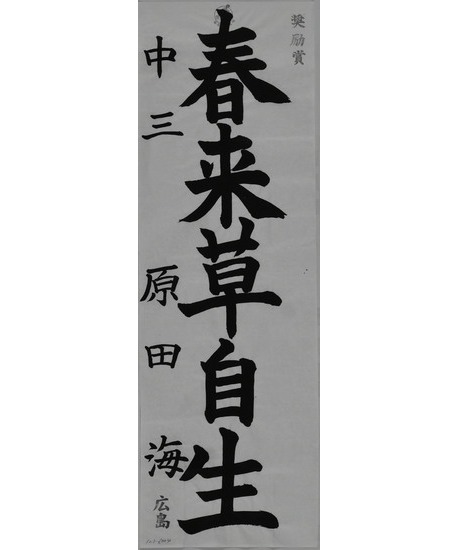 奨励賞
春来草自生
中三 原田 海
広島